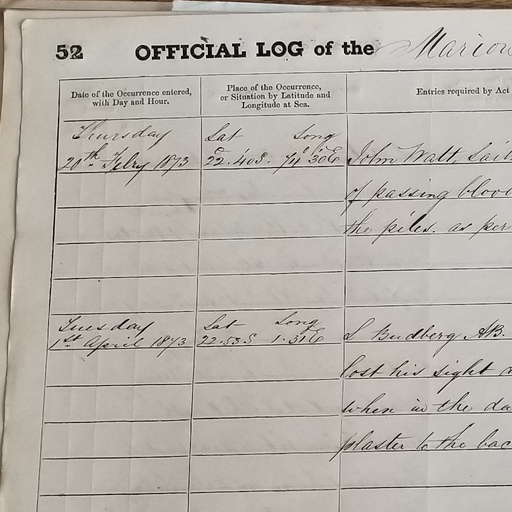 52 OFFICIAL LOG of the Marion
Date of the Occurrence entered, with Day and Hour.
Place of the Occurrence, or Situation by Latitude and Longitude at Sea.
Entries required by Act
Thursday
20th Febry 1873
Lat Long
22.40S. 74°30E
John Watt, Sail
of passing blood
the piles. as per
Tuesday
1st April 1873
Lat Long
22.53S 1.31E
S Budberg AB.
lost his sight
when in the da
plaster to the bac